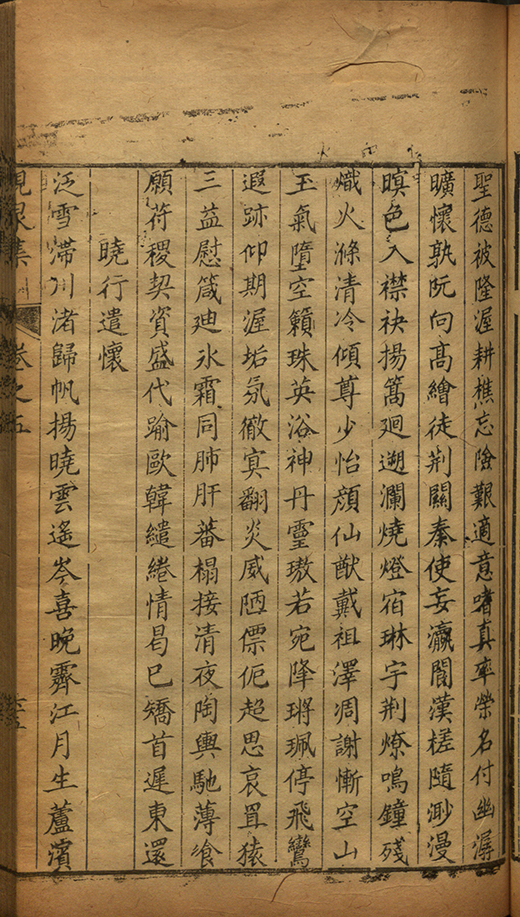 聖德被隆渥耕樵忘險艱適意嗜真率榮名付幽潺
曠懷孰阮向高繪徒荆關秦使妄瀛閬漢槎隨渺漫
暝色入襟袂揚篙廻遡瀾燒燈宿琳宇荆燎鳴鐘殘
熾火滌清冷傾尊少怡顔仙猷戴祖澤凋謝慚空山
玉氣墮空籟珠英浴神丹霊璈若宛降瑹珮停飛鸞
遐跡仰期渥垢氛徹寞翻炎威陋僄佹超思哀罝猿
三益慰箴廸氷霜同肺肝蕃榻接清夜陶輿馳薄飡
願符稷契資盛代踰歐韓繾綣情曷已矯首遲東還
曉行遣懷
泛雪滯川渚歸帆揚曉雲遙岑喜晚霽江月生蘆濱
峴泉集 卷之五